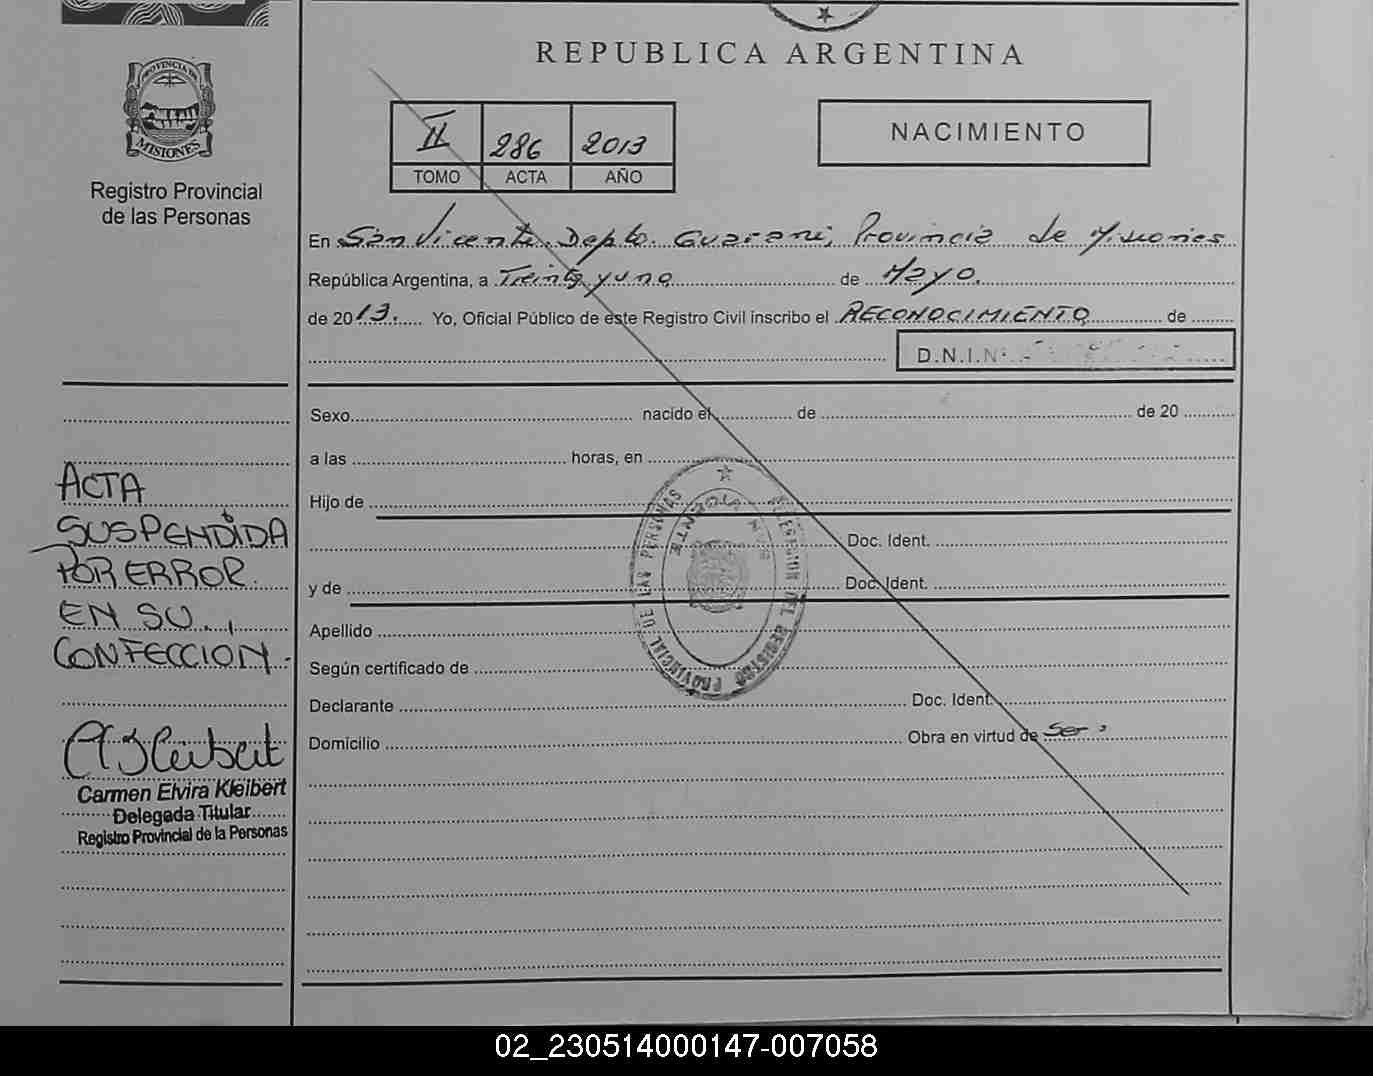 REPUBLICA ARGENTINA
PROVINCIA DE
MISIONES
Registro Provincial
de las Personas
II 286 2013
TOMO ACTA AÑO
NACIMIENTO
En San Vicente, Depto. Guaraní, Provincia de Misiones
República Argentina, a Treinta y uno de Mayo.
de 2013. Yo, Oficial Público de este Registro Civil inscribo el RECONOCIMIENTO de
D.N.I.Nº
Sexo nacido el de de 20
a las horas, en
Hijo de
Doc. Ident.
y de Doc. Ident.
Apellido
Según certificado de
Declarante Doc. Ident.
Domicilio Obra en virtud de Ser
ACTA
SUSPENDIDA
POR ERROR
EN SU
CONFECCION.-
Carmen Elvira Kleibert
Delegada Titular
Registro Provincial de la Personas
DELEGACION DEL REGISTRO PROVINCIAL DE LAS PERSONAS
SAN VICENTE
02_230514000147-007058